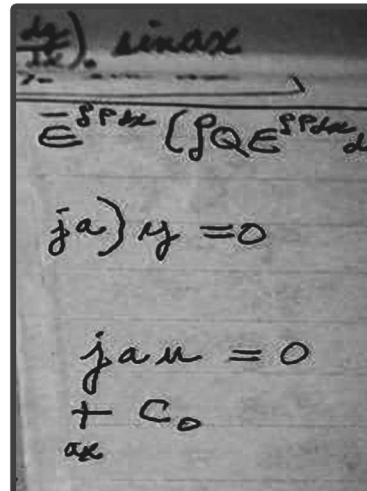 dy/dx). sinax
ε^-∫Pdx (∫Qε^∫Pdx d
ja) y = 0
jau = 0
+ C₀
ax